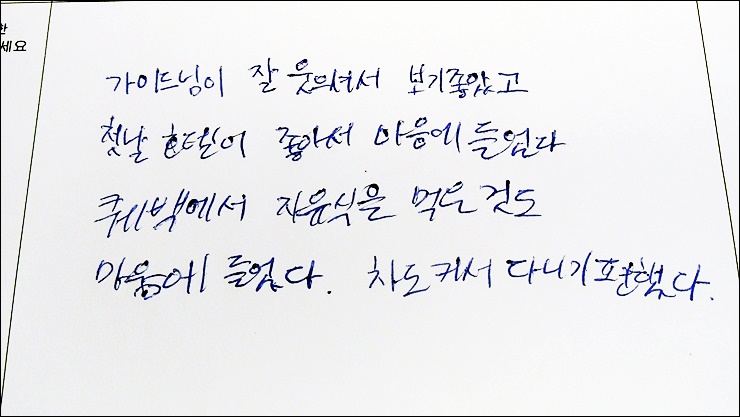 한
세요
가이드님이 잘 웃으셔서 보기좋았고
첫날 호텔이 좋아서 마음에 들었다
퀘벡에서 자유식을 먹은것도
마음에 들었다. 차도 커서 다니기 편했다.